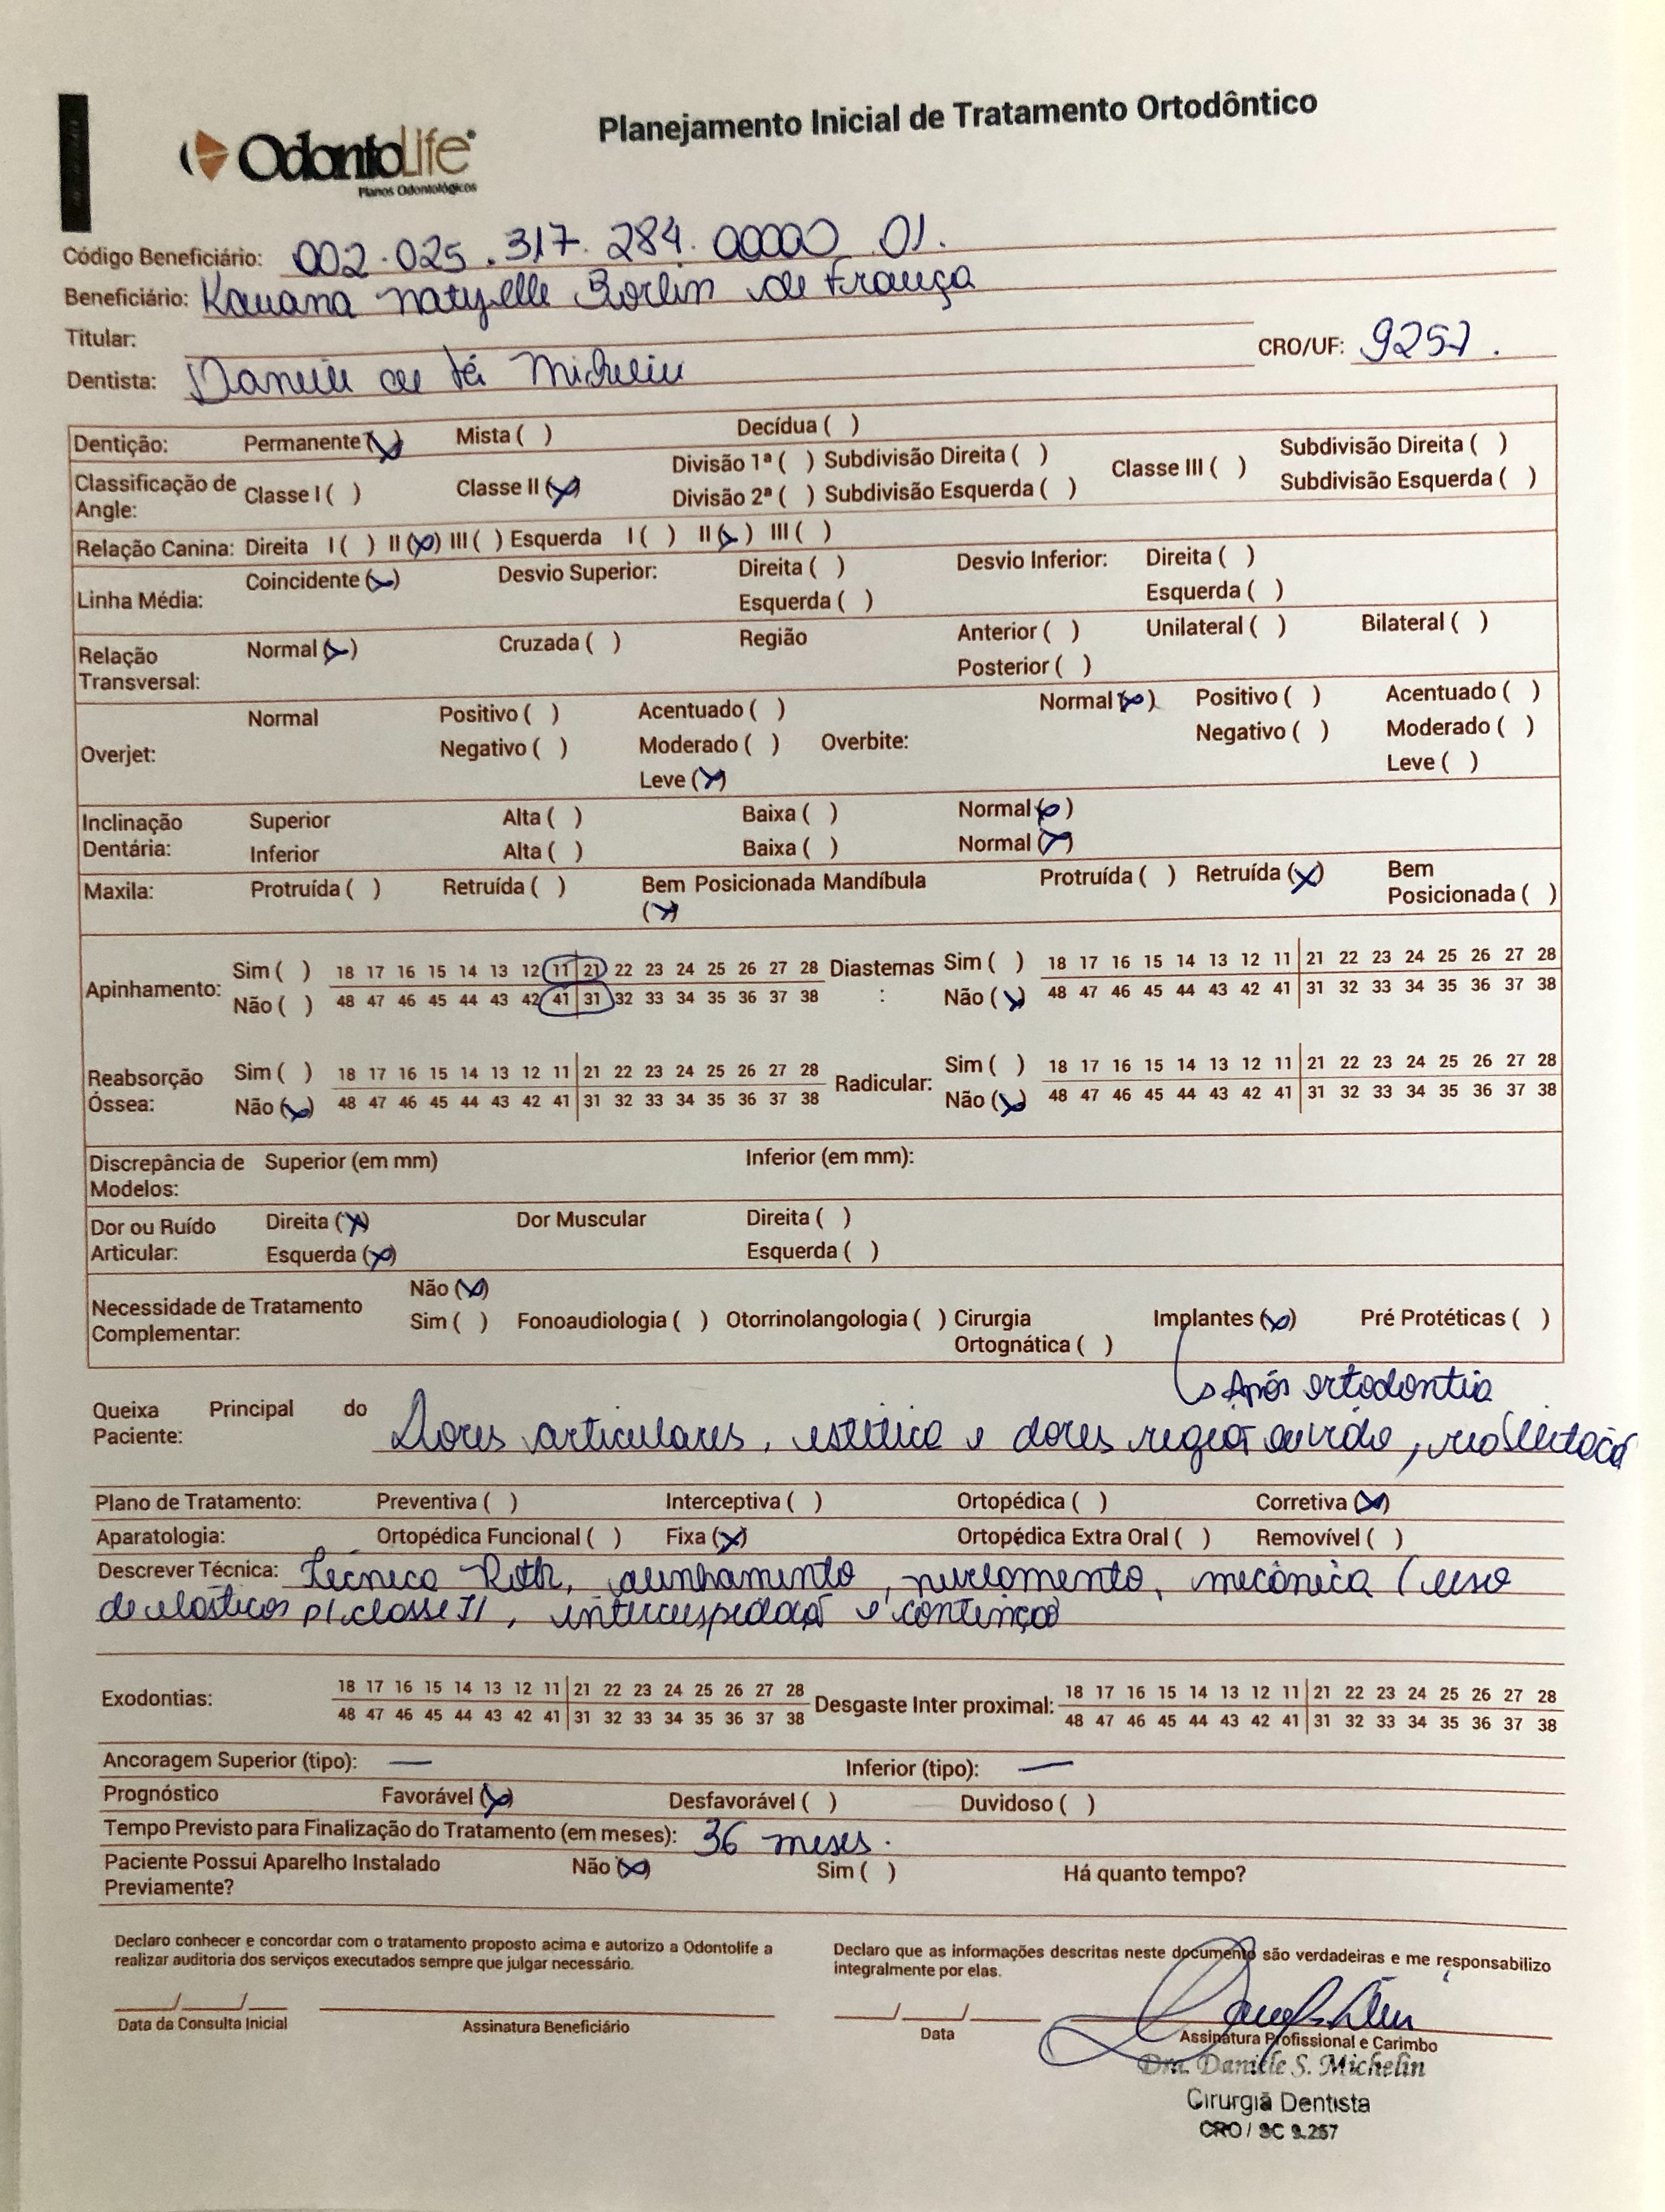 Planejamento Inicial de Tratamento Ortodôntico
OdontoLife
Planos Odontológicos
Código Beneficiário: 002.025.317.284.00000 01.
Beneficiário: Kauana Natyelle Borlin de França
Titular:
CRO/UF: 9257.
Dentista: Daniele de Sá Michelin
Dentição: Permanente (x) Mista ( ) Decídua ( )
Classificação de Angle: Classe I ( ) Classe II (x) Divisão 1ª ( ) Subdivisão Direita ( ) Classe III ( ) Subdivisão Direita ( )
Divisão 2ª ( ) Subdivisão Esquerda ( ) Subdivisão Esquerda ( )
Relação Canina: Direita I ( ) II (x) III ( ) Esquerda I ( ) II (x) III ( )
Linha Média: Coincidente (x) Desvio Superior: Direita ( ) Desvio Inferior: Direita ( )
Esquerda ( ) Esquerda ( )
Relação Transversal: Normal (x) Cruzada ( ) Região Anterior ( ) Unilateral ( ) Bilateral ( )
Posterior ( )
Overjet: Normal Positivo ( ) Acentuado ( ) Overbite: Normal (x) Positivo ( ) Acentuado ( )
Negativo ( ) Moderado ( ) Negativo ( ) Moderado ( )
Leve (x) Leve ( )
Inclinação Dentária: Superior Alta ( ) Baixa ( ) Normal (x)
Inferior Alta ( ) Baixa ( ) Normal (x)
Maxila: Protruída ( ) Retruída ( ) Bem Posicionada (x) Mandíbula Protruída ( ) Retruída (x) Bem Posicionada ( )
Apinhamento: Sim ( ) 18 17 16 15 14 13 12 11 21 22 23 24 25 26 27 28 Diastemas : Sim ( ) 18 17 16 15 14 13 12 11 21 22 23 24 25 26 27 28
Não ( ) 48 47 46 45 44 43 42 41 31 32 33 34 35 36 37 38 Não (x) 48 47 46 45 44 43 42 41 31 32 33 34 35 36 37 38
Reabsorção Óssea: Sim ( ) 18 17 16 15 14 13 12 11 21 22 23 24 25 26 27 28 Radicular: Sim ( ) 18 17 16 15 14 13 12 11 21 22 23 24 25 26 27 28
Não (x) 48 47 46 45 44 43 42 41 31 32 33 34 35 36 37 38 Não (x) 48 47 46 45 44 43 42 41 31 32 33 34 35 36 37 38
Discrepância de Modelos: Superior (em mm) Inferior (em mm):
Dor ou Ruído Articular: Direita (x) Dor Muscular Direita ( )
Esquerda (x) Esquerda ( )
Necessidade de Tratamento Complementar: Não (x)
Sim ( ) Fonoaudiologia ( ) Otorrinolangologia ( ) Cirurgia Ortognática ( ) Implantes (x) Pré Protéticas ( )
Após ortodontia
Queixa Principal do Paciente: Dores articulares, estética e dores região ouvido,
Plano de Tratamento: Preventiva ( ) Interceptiva ( ) Ortopédica ( ) Corretiva (x)
Aparatologia: Ortopédica Funcional ( ) Fixa (x) Ortopédica Extra Oral ( ) Removível ( )
Descrever Técnica: Técnica Roth, alinhamento, nivelamento, mecânica (uso
de elásticos p/ classe II, intercuspidação e contenção
Exodontias: 18 17 16 15 14 13 12 11 21 22 23 24 25 26 27 28 Desgaste Inter proximal: 18 17 16 15 14 13 12 11 21 22 23 24 25 26 27 28
48 47 46 45 44 43 42 41 31 32 33 34 35 36 37 38 48 47 46 45 44 43 42 41 31 32 33 34 35 36 37 38
Ancoragem Superior (tipo): — Inferior (tipo): —
Prognóstico Favorável (x) Desfavorável ( ) Duvidoso ( )
Tempo Previsto para Finalização do Tratamento (em meses): 36 meses.
Paciente Possui Aparelho Instalado Previamente? Não (x) Sim ( ) Há quanto tempo?
Declaro conhecer e concordar com o tratamento proposto acima e autorizo a Odontolife a
realizar auditoria dos serviços executados sempre que julgar necessário.
Declaro que as informações descritas neste documento são verdadeiras e me responsabilizo
integralmente por elas.
___/___/___
Data da Consulta Inicial
Assinatura Beneficiário
___/___/___
Data
Assinatura Profissional e Carimbo
Dra. Daniele S. Michelin
Cirurgiã Dentista
CRO / SC 9.257